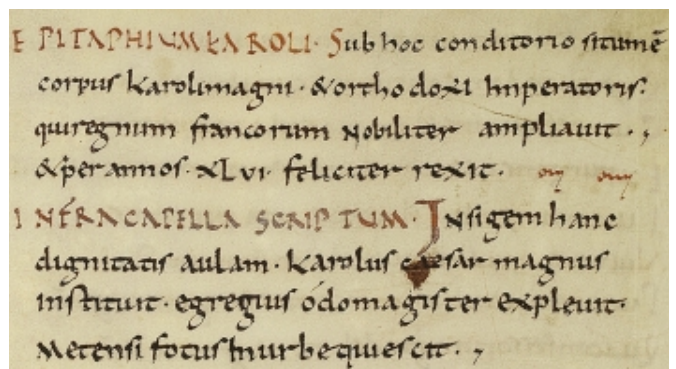 EPITAPHIUM KAROLI· Sub hoc conditorio situm ē
corpus karoli magni· & orthodoxi Imperatoris:
qui regnum francorum Nobiliter ampliauit·,
& per annos· xLvi· feliciter rexit·
INFRA CAPELLA SCRIPTUM· INsigem hanc
dignitatis aulam· karolus caesar magnus
instituit· egregius odo magister expleuit·
Metensi fotus In urbe quiescit·,